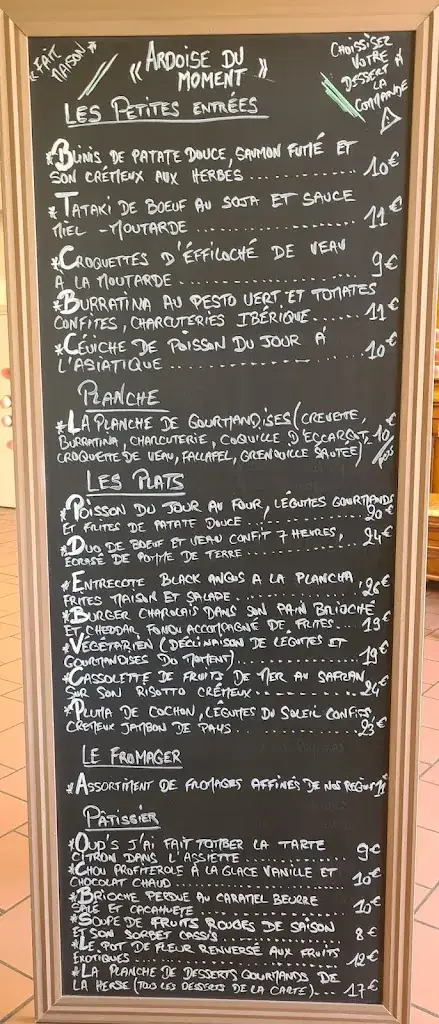 « FAIT MAISON »
« ARDOISE DU MOMENT »
CHOISSISEZ VOTRE DESSERT À LA COMMANDE
LES PETITES ENTRÉES
*BLINIS DE PATATE DOUCE, SAUMON FUMÉ ET
SON CRÉMEUX AUX HERBES .............. 10€
*TATAKI DE BOEUF AU SOJA ET SAUCE
MIEL - MOUTARDE ................... 11€
*CROQUETTES D'ÉFFILOCHÉ DE VEAU
A LA MOUTARDE ..................... 9€
*BURRATINA AU PESTO VERT ET TOMATES
CONFITES, CHARCUTERIES IBÉRIQUE ..... 11€
*CÉVICHE DE POISSON DU JOUR À
L'ASIATIQUE ...................... 10€
PLANCHE
*LA PLANCHE DE GOURMANDISES (CREVETTE,
BURRATINA, CHARCUTERIE, COQUILLE D'ECCARGOT, 10€
CROQUETTE DE VEAU, FALLAFEL, GRENOUILLE SAUTÉE) /PERS
LES PLATS
*POISSON DU JOUR AU FOUR, LÉGUMES GOURMANDS
ET FRITES DE PATATE DOUCE ........... 20€
*DUO DE BOEUF ET VEAU CONFIT 7 HEURES,
ÉCRASÉ DE POMME DE TERRE ........... 24€
*ENTRECOTE BLACK ANGUS A LA PLANCHA,
FRITES MAISON ET SALADE ............ 26€
*BURGER CHAROLAIS DANS SON PAIN BRIOCHÉ
ET CHEDDAR FONDU ACCOMPAGNÉ DE FRITES .... 19€
*VÉGÉTARIEN (DÉCLINAISON DE LÉGUMES ET
GOURMANDISES DU MOMENT) .............. 19€
*CASSOLETTE DE FRUITS DE MER AU SAFRAN
SUR SON RISOTTO CRÉMEUX ............ 24€
*PLUMA DE COCHON, LÉGUMES DU SOLEIL CONFITS,
CRÉMEUX JAMBON DE PAYS ............. 23€
LE FROMAGER
*ASSORTIMENT DE FROMAGES AFFINÉS DE NOS RÉGIONS 11€
PÂTISSIER
*OUP'S J'AI FAIT TOMBER LA TARTE
CITRON DANS L'ASSIETTE ............. 9€
*CHOU PROFITEROLE À LA GLACE VANILLE ET
CHOCOLAT CHAUD ................... 10€
*BRIOCHE PERDUE AU CARAMEL BEURRE
SALÉ ET CACAHUÈTE ................ 10€
*SOUPE DE FRUITS ROUGES DE SAISON
ET SON SORBET CASSIS .............. 8€
*LE POT DE FLEUR RENVERSÉ AUX FRUITS
EXOTIQUES ...................... 12€
*LA PLANCHE DE DESSERTS GOURMANDS DE
LA HERSE (TOUS LES DESSERTS DE LA CARTE) ... 17€